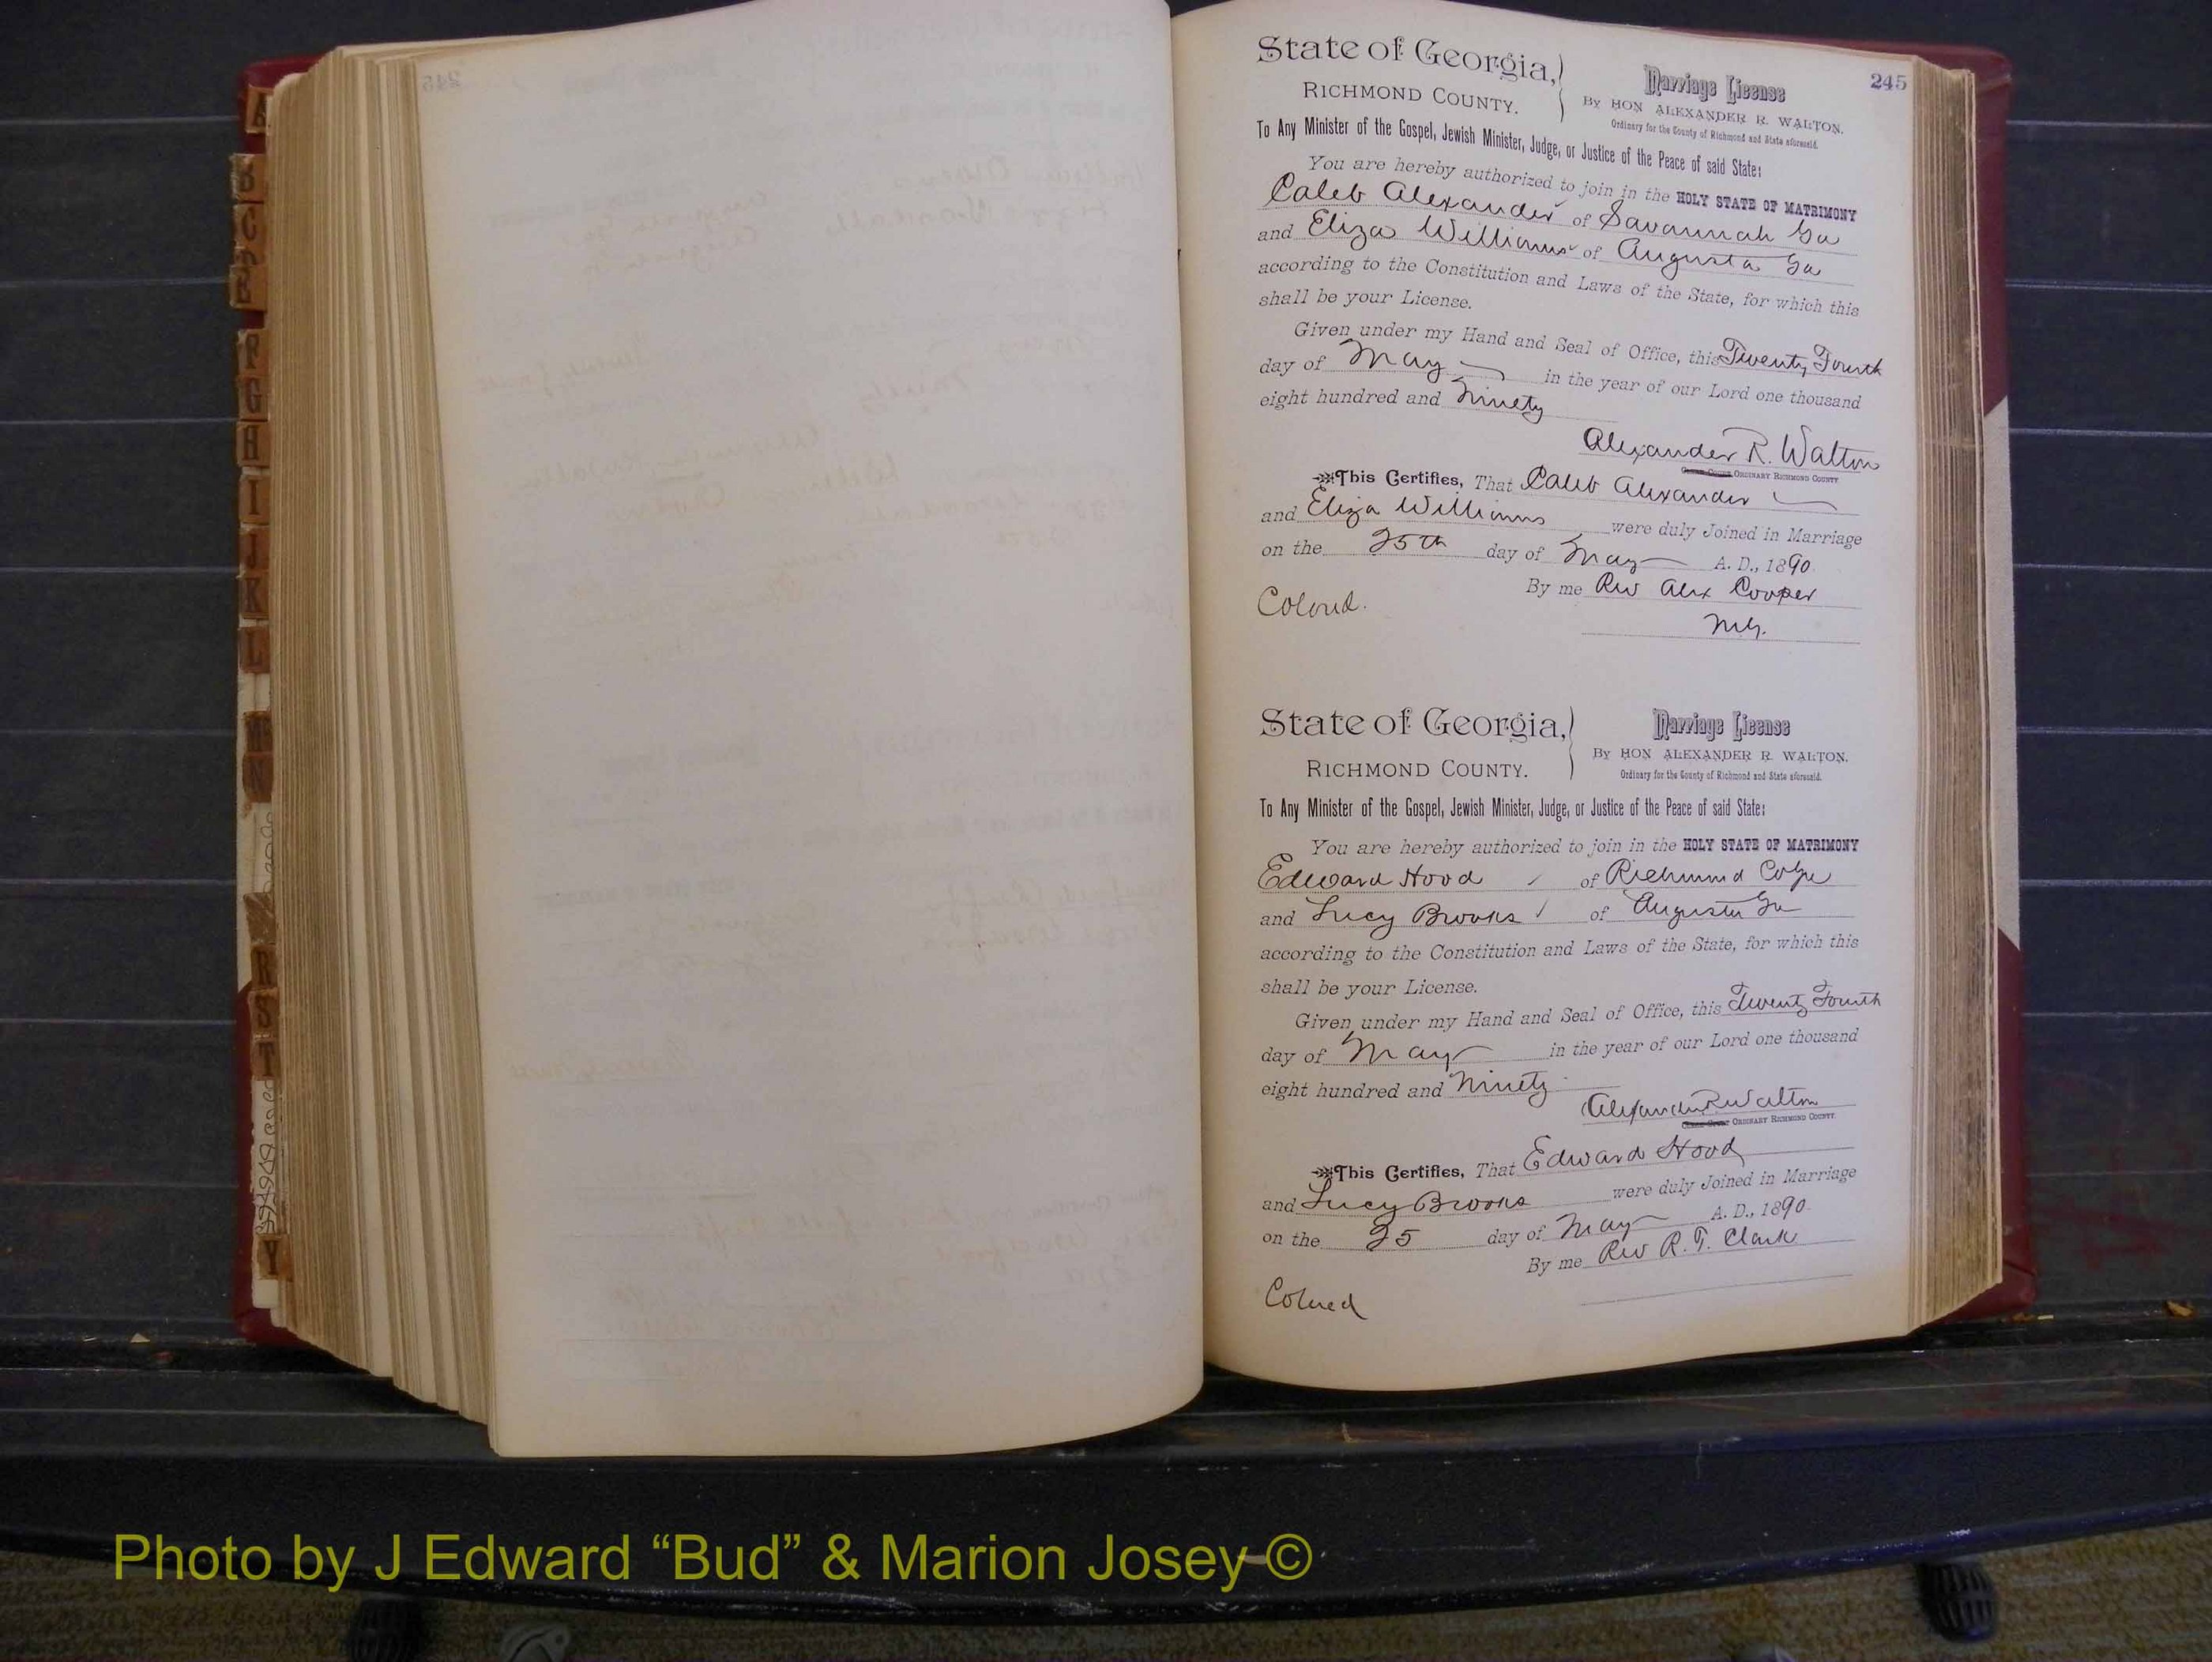 245
State of Georgia,
RICHMOND COUNTY.
Marriage License
BY HON ALEXANDER R. WALTON.
Ordinary for the County of Richmond and State aforesaid.
To Any Minister of the Gospel, Jewish Minister, Judge, or Justice of the Peace of said State:
You are hereby authorized to join in the HOLY STATE OF MATRIMONY
Caleb Alexander of Savannah Ga
and Eliza Williams of Augusta Ga
according to the Constitution and Laws of the State, for which this
shall be your License.
Given under my Hand and Seal of Office, this Twenty Fourth
day of May in the year of our Lord one thousand
eight hundred and Ninety
Alexander R. Walton
ORDINARY RICHMOND COUNTY
This Certifies, That Caleb Alexander
and Eliza Williams were duly Joined in Marriage
on the 25th day of May A. D., 1890.
By me Rev Alex Cooper
Colored.
M.G.
State of Georgia,
RICHMOND COUNTY.
Marriage License
BY HON ALEXANDER R. WALTON.
Ordinary for the County of Richmond and State aforesaid.
To Any Minister of the Gospel, Jewish Minister, Judge, or Justice of the Peace of said State:
You are hereby authorized to join in the HOLY STATE OF MATRIMONY
Edward Hood of Richmond Co Ga
and Lucy Brooks of Augusta Ga
according to the Constitution and Laws of the State, for which this
shall be your License.
Given under my Hand and Seal of Office, this Twenty Fourth
day of May in the year of our Lord one thousand
eight hundred and Ninety
Alexander R Walton
ORDINARY RICHMOND COUNTY.
This Certifies, That Edward Hood
and Lucy Brooks were duly Joined in Marriage
on the 25 day of May A. D., 1890.
By me Rev R. T. Clark
Colored
A
B
C
F
G
H
I
J
K
L
M
N
R
S
T
Y
Photo by J Edward “Bud” & Marion Josey ©